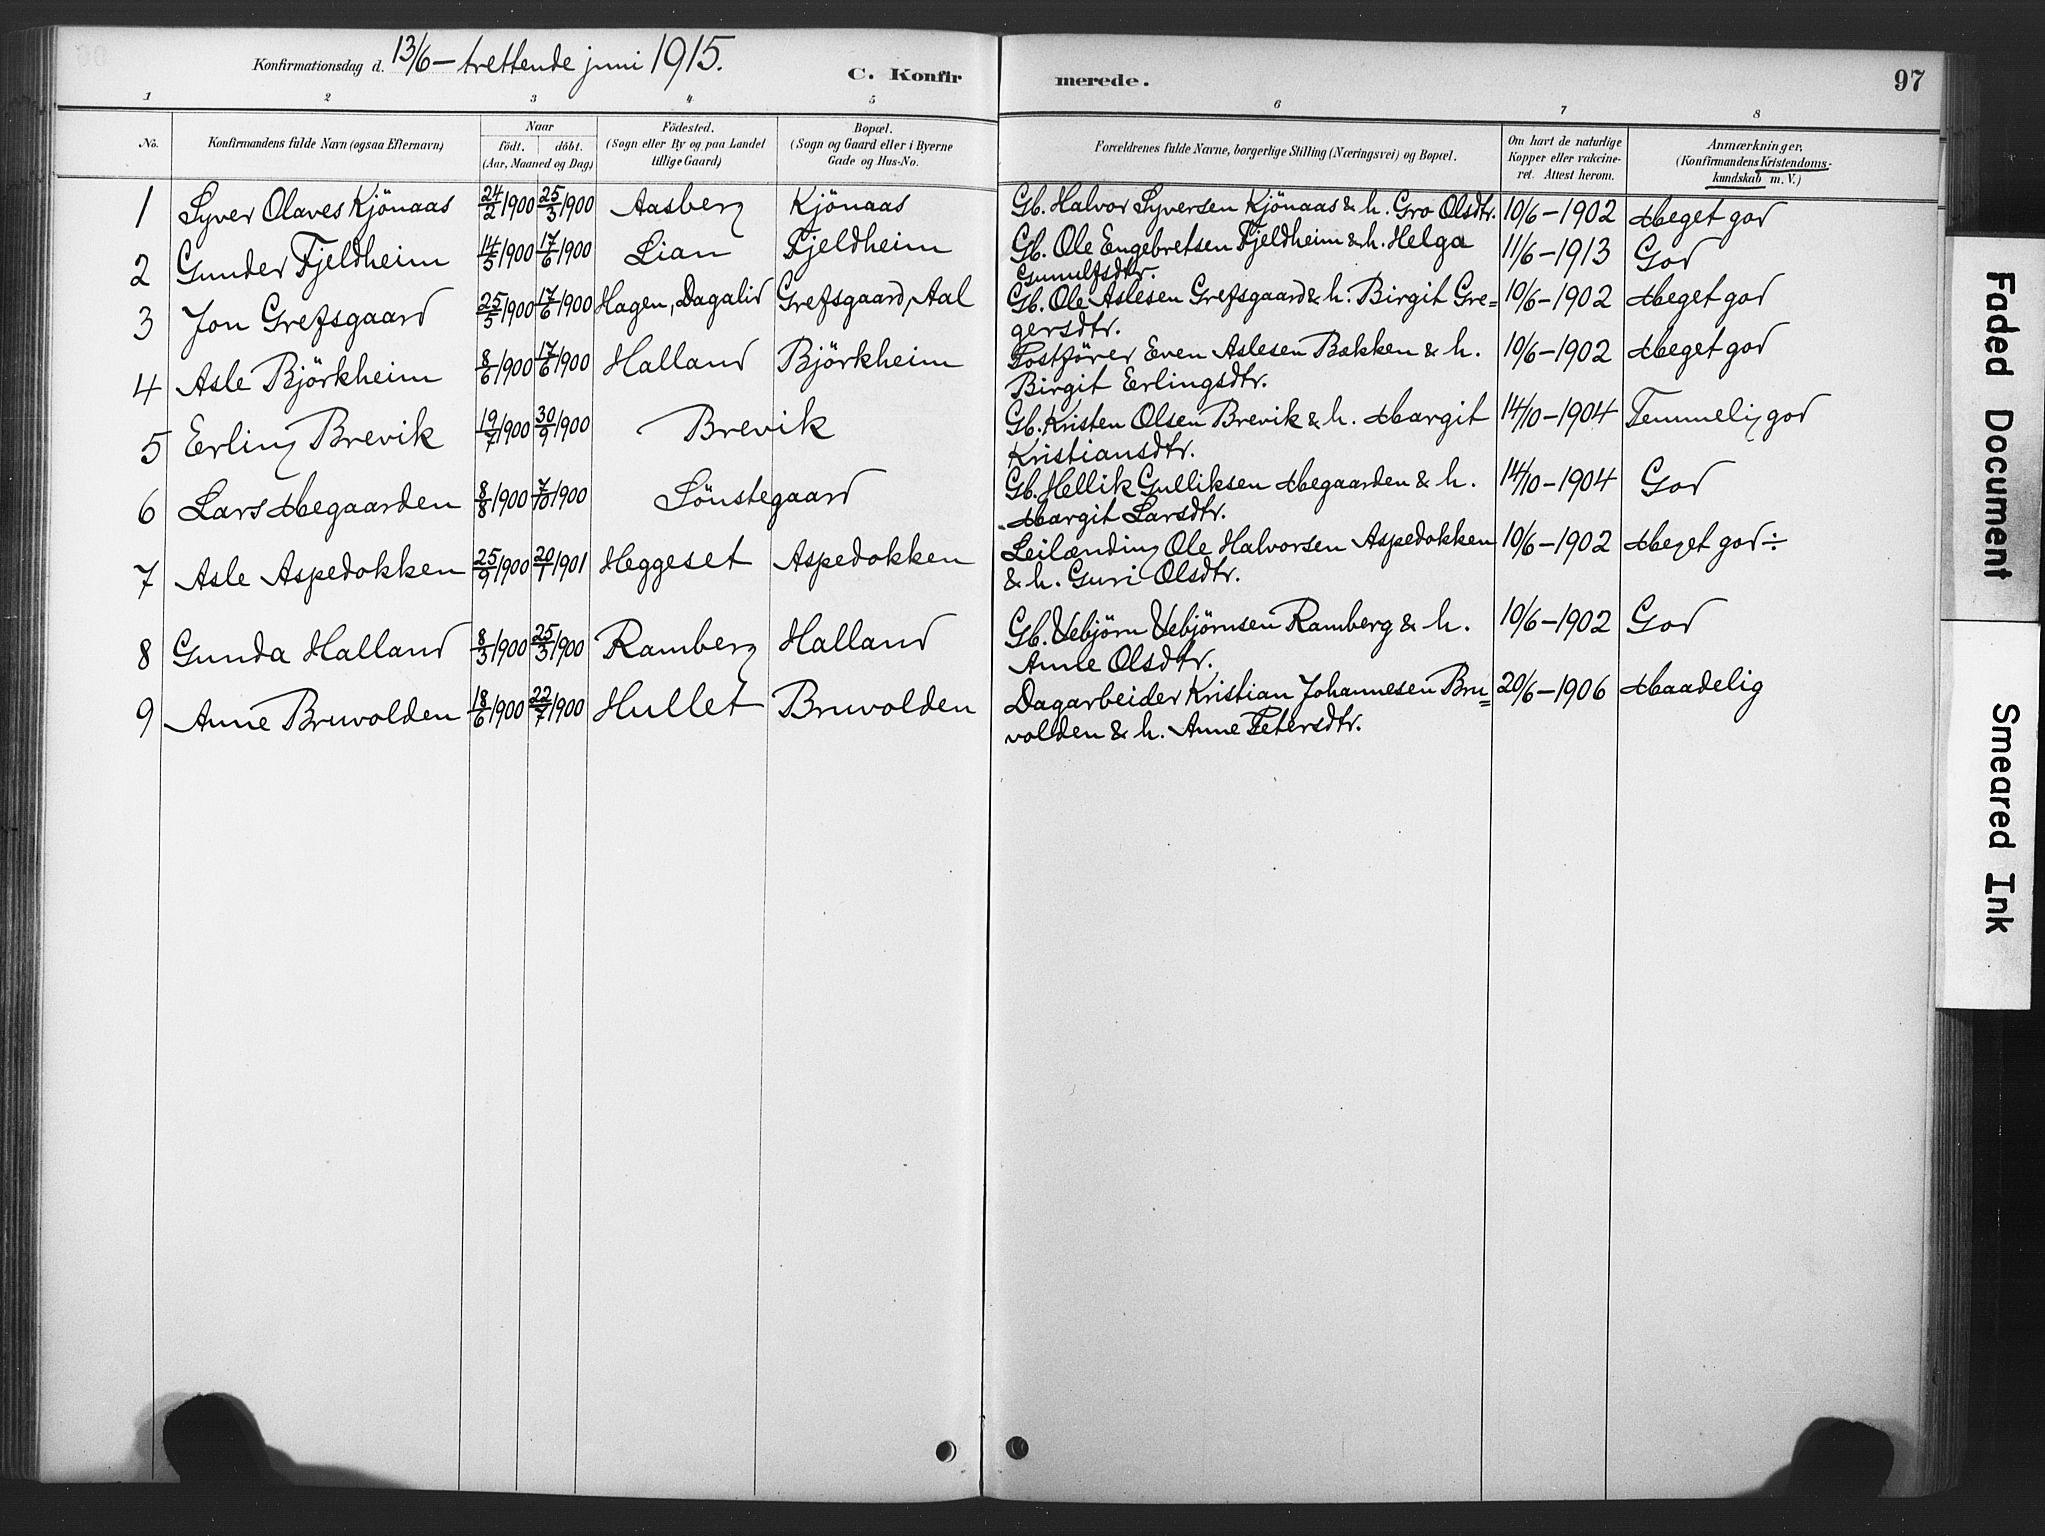 Konfirmationsdag d. 13/6 – trettende juni 1915.
C. Konfirmerede.
97
1 2 3 4 5 6 7 8
No.
Konfirmandens fulde Navn (ogsaa Efternavn)
Naar
födt. döbt.
(Aar, Maaned og Dag)
Födested.
(Sogn eller By og paa Landet
tillige Gaard)
Bopæl.
(Sogn og Gaard eller i Byerne
Gade og Hus-No.
Forældrenes fulde Navne, borgerlige Stilling (Næringsvei) og Bopæl.
Om havt de naturlige
Kopper eller vakcine-
ret. Attest herom.
Anmærkninger,
(Konfirmandens Kristendoms-
kundskab m. V.)
1 Syver Olaves Kjönaas 24/2 1900 25/3 1900 Aasberg Kjönaas Gb. Halvor Syversen Kjönaas & h. Gro Olsdtr. 10/6 – 1902 Meget god
2 Gunder Fjeldheim 14/5 1900 17/6 1900 Lian Fjeldheim Gb. Ole Engebretsen Fjeldheim & h. Helga 11/6 – 1913 God
Gunulfsdtr.
3 Jon Grefsgaard 25/5 1900 17/6 1900 Hagen, Dagalid Grefsgaard, Aal Gb. Ole Aslesen Grefsgaard & h. Birgit Gre= 10/6 – 1902 Meget god
gersdtr.
4 Asle Björkheim 8/6 1900 17/6 1900 Halland Björkheim Postförer Even Aslesen Bakken & h. 10/6 – 1902 Meget god
Birgit Erlingsdtr.
5 Erling Brevik 19/7 1900 30/9 1900 Brevik Gb. Kristen Olsen Brevik & h. Margit 14/10 – 1904 Temmelig god
Kristiansdtr.
6 Lars Megaarden 8/8 1900 7/10 1900 Lönstegaard Gb. Hellik Gulliksen Megaarden & h. 14/10 – 1904 God
Margit Larsdtr.
7 Asle Aspedokken 25/9 1900 20/1 1901 Heggeset Aspedokken Leilænding Ole Halvorsen Aspedokken 10/6 – 1902 Meget god ÷
& h. Guri Olsdtr.
8 Gunda Halland 8/3 1900 25/3 1900 Ramberg Halland Gb. Vebjörn Vebjörnsen Ramberg & h. 10/6 – 1902 God
Anne Olsdtr.
9 Anne Bruvolden 18/6 1900 22/7 1900 Hullet Bruvolden Dagarbeider Kristian Johannesen Bru= 20/6 – 1906 Maadelig
volden & h. Anne Petersdtr.
Faded Document
Smeared Ink